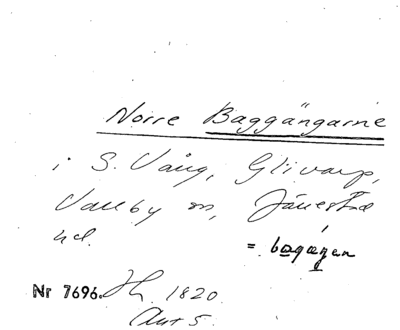 Norre Baggängarne
i S. Vång, Glivarp,
Vallby sn, Järrestad
hd.
= bagægen
Nr 7696. Jh. 1820
Akt 5.